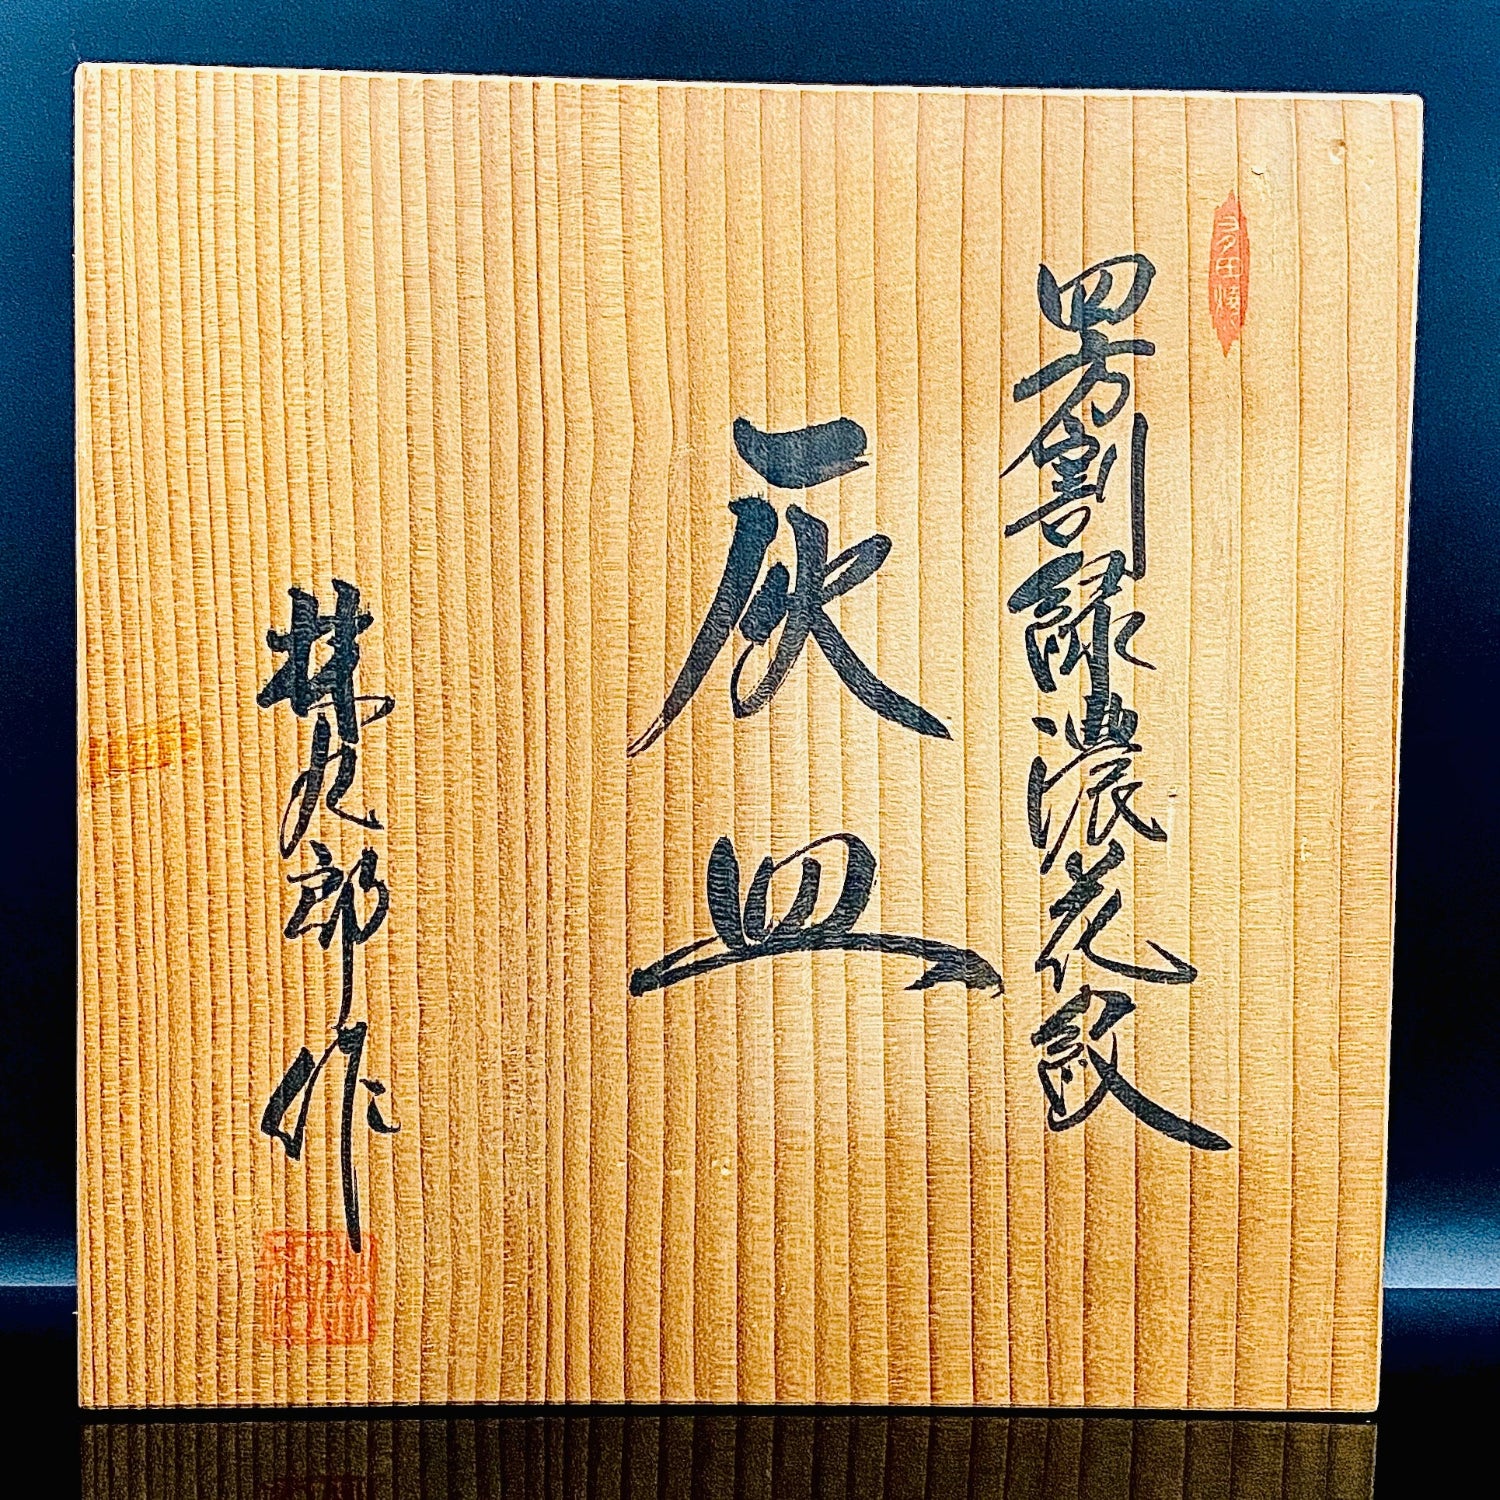 多田焼
四方割緑濃花紋
灰皿
林九郎作